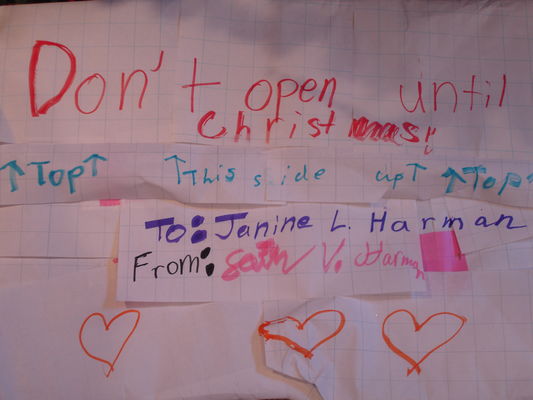 Don't open until
Christmas!
↑Top↑ ↑This side up↑ ↑Top↑
To: Janine L. Harman
From: Seth V. Harman